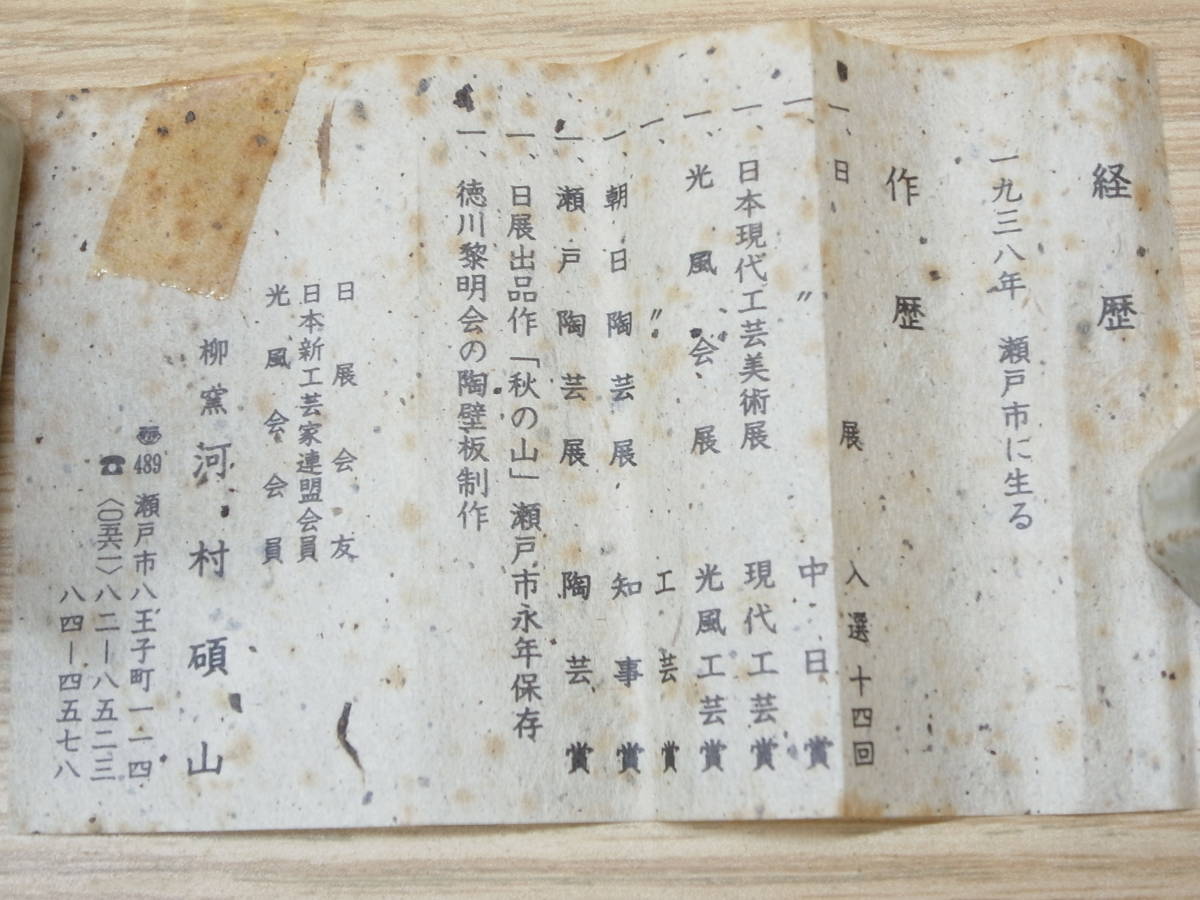 経歴
一九三八年 瀬戸市に生る
作歴
一、日展 入選十四回
一、〃 中日賞
一、日本現代工芸美術展 現代工芸賞
一、光風会展 光風工芸賞
一、〃 工芸賞
一、朝日陶芸展 知事賞
一、瀬戸陶芸展 陶芸賞
一、日展出品作「秋の山」瀬戸市永年保存
一、徳川黎明会の陶壁板制作
日展会友
日本新工芸家連盟会員
光風会会員
柳窯 河村碩山
〠489 瀬戸市八王子町一ー一四
☎〈〇五六一〉八二ー八五二三
八四ー四五七八